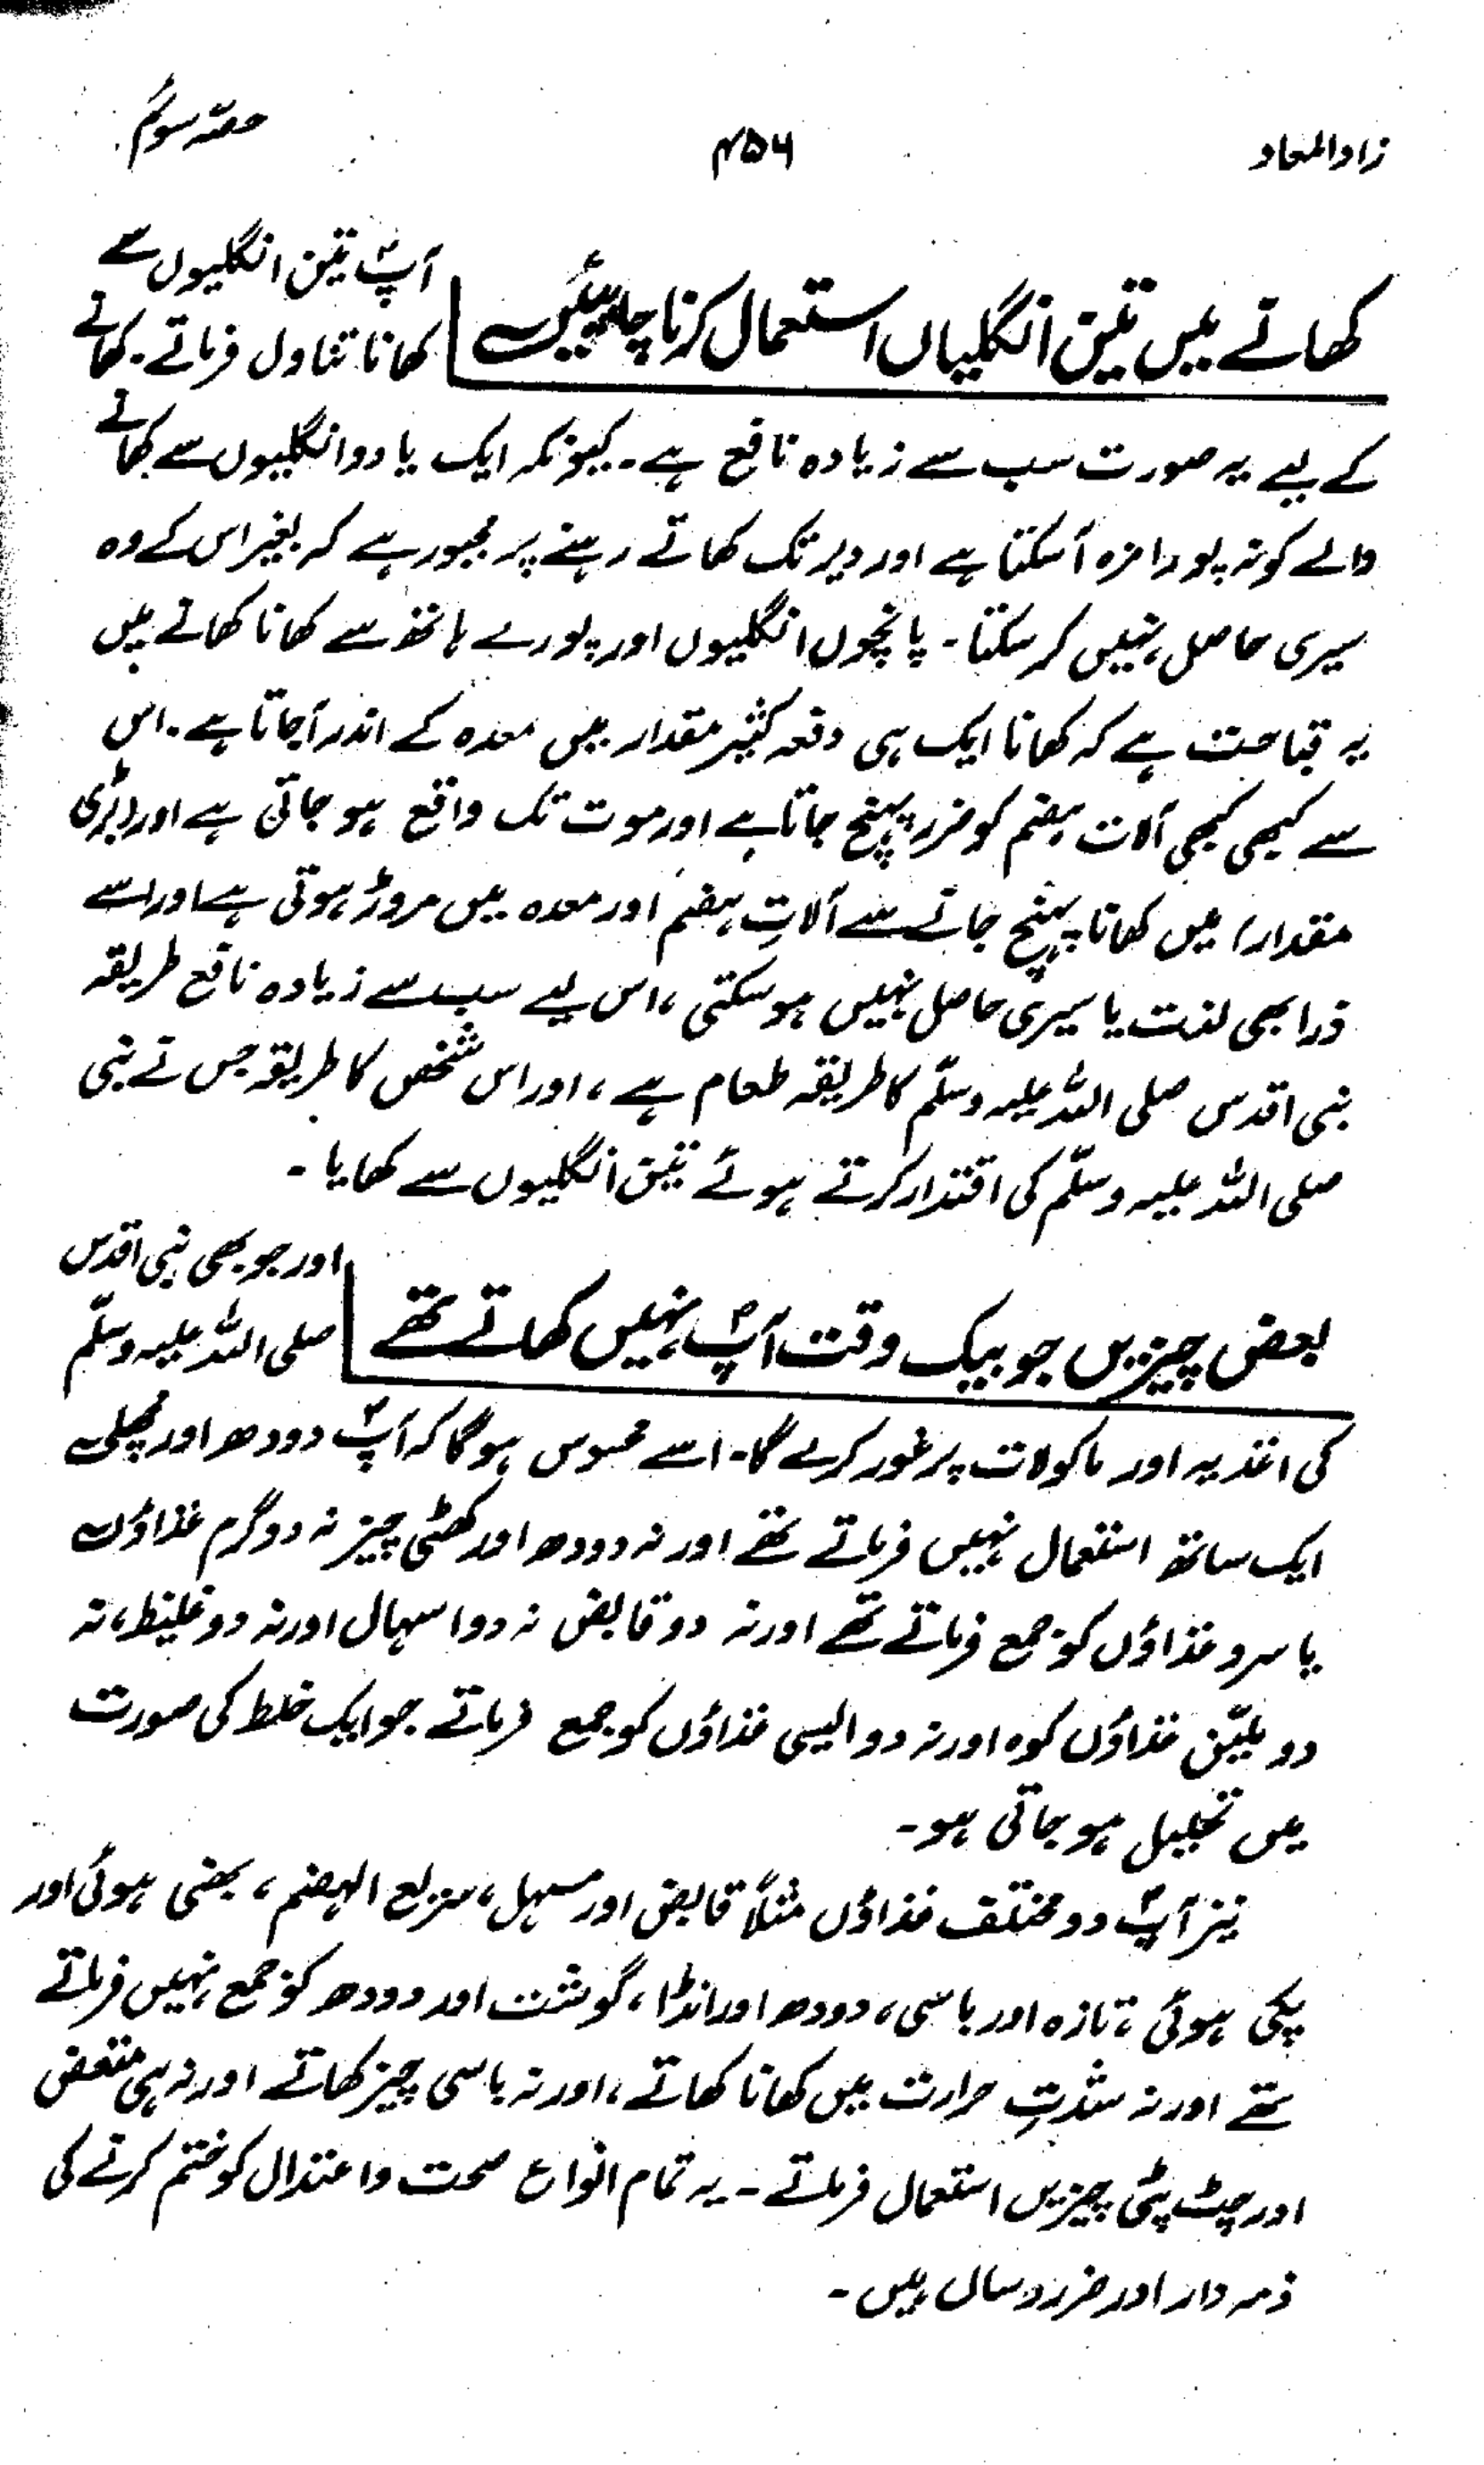 زادالمعاد
۴۵۶
حصّہ سوئم
کھانے میں تین انگلیاں استعمال کرنا چاہئیں
آپؐ تین انگلیوں سے
کھانا تناول فرماتے۔ کھانے
کے لیے یہ صورت سب سے زیادہ نافع ہے۔ کیونکہ ایک یا دو انگلیوں سے کھانے
والے کو نہ پورا مزہ آسکتا ہے اور دیر تک کھاتے رہنے پر مجبور ہے کہ بغیر اس کے وہ
سیری حاصل نہیں کر سکتا۔ پانچوں انگلیوں اور پورے ہاتھ سے کھانا کھانے میں
یہ قباحت ہے کہ کھانا ایک ہی دفعہ کثیر مقدار میں معدہ کے اندر آجاتا ہے۔ اس
سے کبھی کبھی آلات ہضم کو ضرر پہنچ جاتا ہے اور موت تک واقع ہو جاتی ہے اور (بڑی
مقدار) میں کھانا پہنچ جانے سے آلاتِ ہضم اور معدہ میں مروڑ ہوتی ہے اور اسے
ذرا بھی لذت یا سیری حاصل نہیں ہو سکتی، اس لیے سب سے زیادہ نافع طریقہ
نبی اقدس صلی اللہ علیہ وسلّم کا طریقہ طعام ہے، اور اس شخص کا طریقہ جس نے نبی
صلی اللہ علیہ وسلّم کی اقتدار کرتے ہوئے تین انگلیوں سے کھایا۔
بعض چیزیں جو بیک وقت آپؐ نہیں کھاتے تھے
اور جو بھی نبی اقدس
صلی اللہ علیہ وسلّم
کی اغذیہ اور ماکولات پر غور کرے گا۔ اسے محسوس ہوگا کہ آپؐ دودھ اور مچھلی
ایک ساتھ استعمال نہیں فرماتے تھے اور نہ دودھ اور کھٹی چیز نہ دو گرم غذاؤں
یا سرد غذاؤں کو جمع فرماتے تھے اور نہ دو قابض نہ دو اسہال اور نہ دو غلیظ، نہ
دو ملیّن غذاؤں کوہ اور نہ دو ایسی غذاؤں کو جمع فرماتے جو ایک خلط کی صورت
میں تحلیل ہو جاتی ہو۔
نیز آپؐ دو مختلف غذاؤں مثلاً قابض اور مسہل، سریع الہضم، بھنی ہوئی اور
پکی ہوئی، تازہ اور باسی، دودھ اور انڈا، گوشت اور دودھ کو جمع نہیں فرماتے
تھے اور نہ شدّتِ حرارت میں کھانا کھاتے، اور نہ باسی چیز کھاتے اور نہ ہی متعفن
اور چٹ پٹی چیزیں استعمال فرماتے۔ یہ تمام انواع صحت و اعتدال کو ختم کرنے کی
ذمہ دار اور ضرر رساں ہیں۔